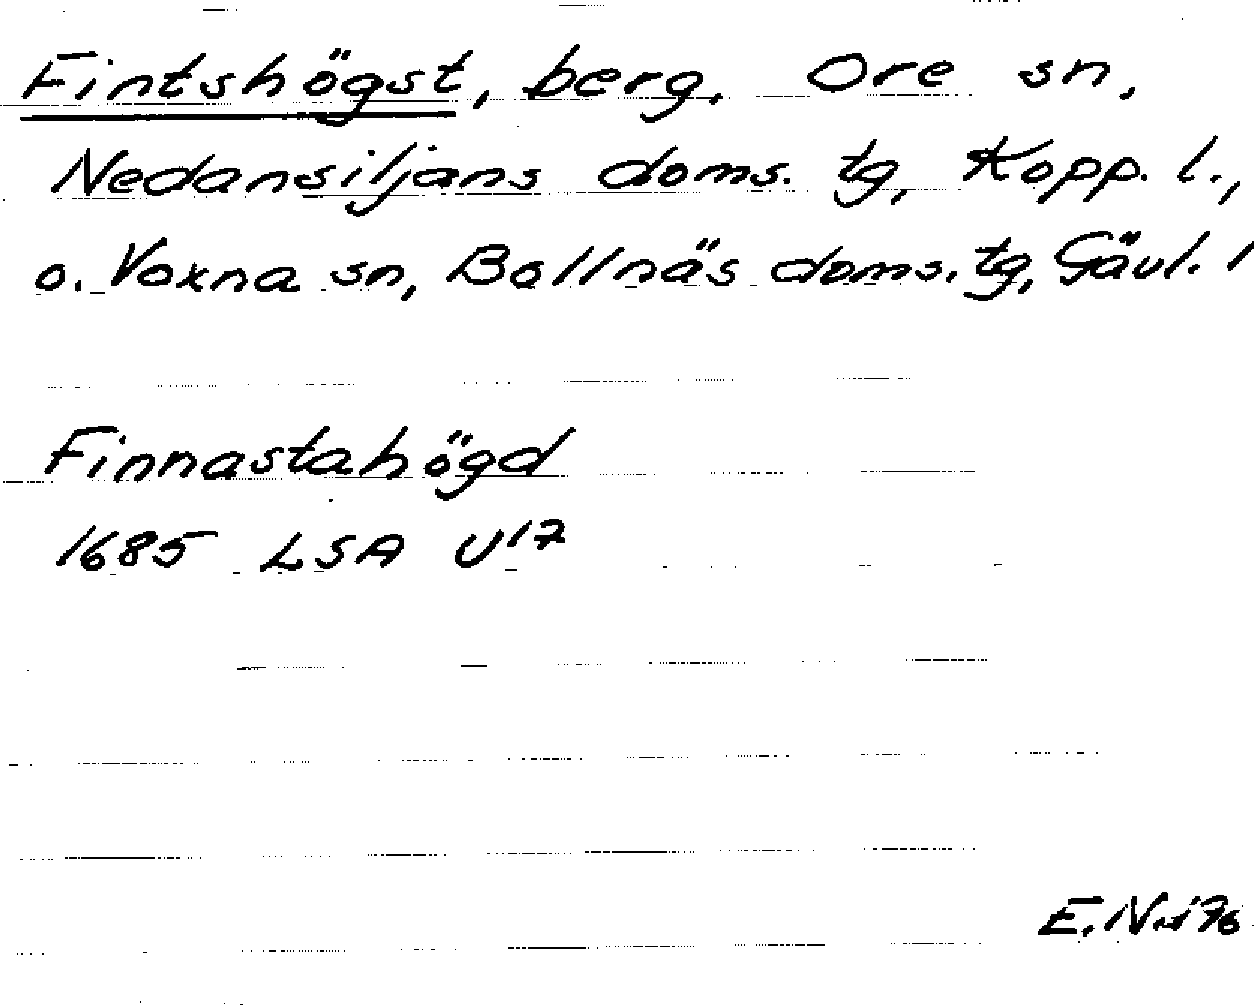 Fintshögst, berg, Ore sn,
Nedansiljans doms. tg, Kopp. l.,
o. Voxna sn, Bollnäs doms. tg, Gävl. l
Finnastahögd
1685 LSA U17
E. N 1976